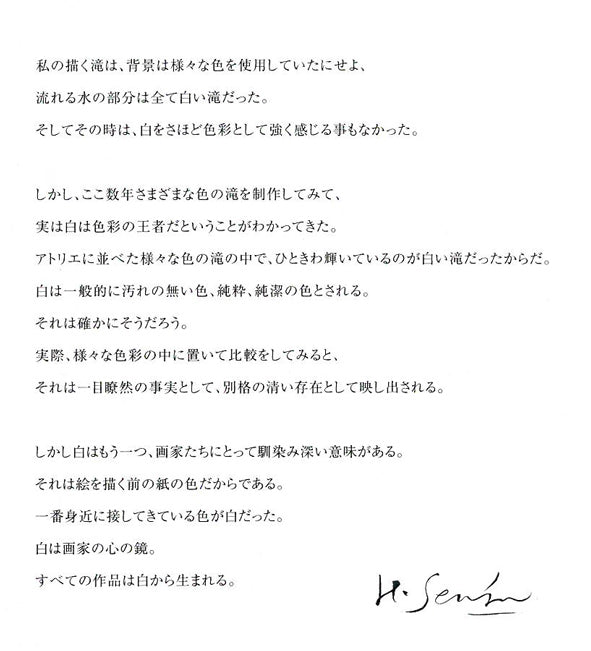 私の描く滝は、背景は様々な色を使用していたにせよ、
流れる水の部分は全て白い滝だった。
そしてその時は、白をさほど色彩として強く感じる事もなかった。
しかし、ここ数年さまざまな色の滝を制作してみて、
実は白は色彩の王者だということがわかってきた。
アトリエに並べた様々な色の滝の中で、ひときわ輝いているのが白い滝だったからだ。
白は一般的に汚れの無い色、純粋、純潔の色とされる。
それは確かにそうだろう。
実際、様々な色彩の中に置いて比較をしてみると、
それは一目瞭然の事実として、別格の清い存在として映し出される。
しかし白はもう一つ、画家たちにとって馴染み深い意味がある。
それは絵を描く前の紙の色だからである。
一番身近に接してきている色が白だった。
白は画家の心の鏡。
すべての作品は白から生まれる。
H. Senju